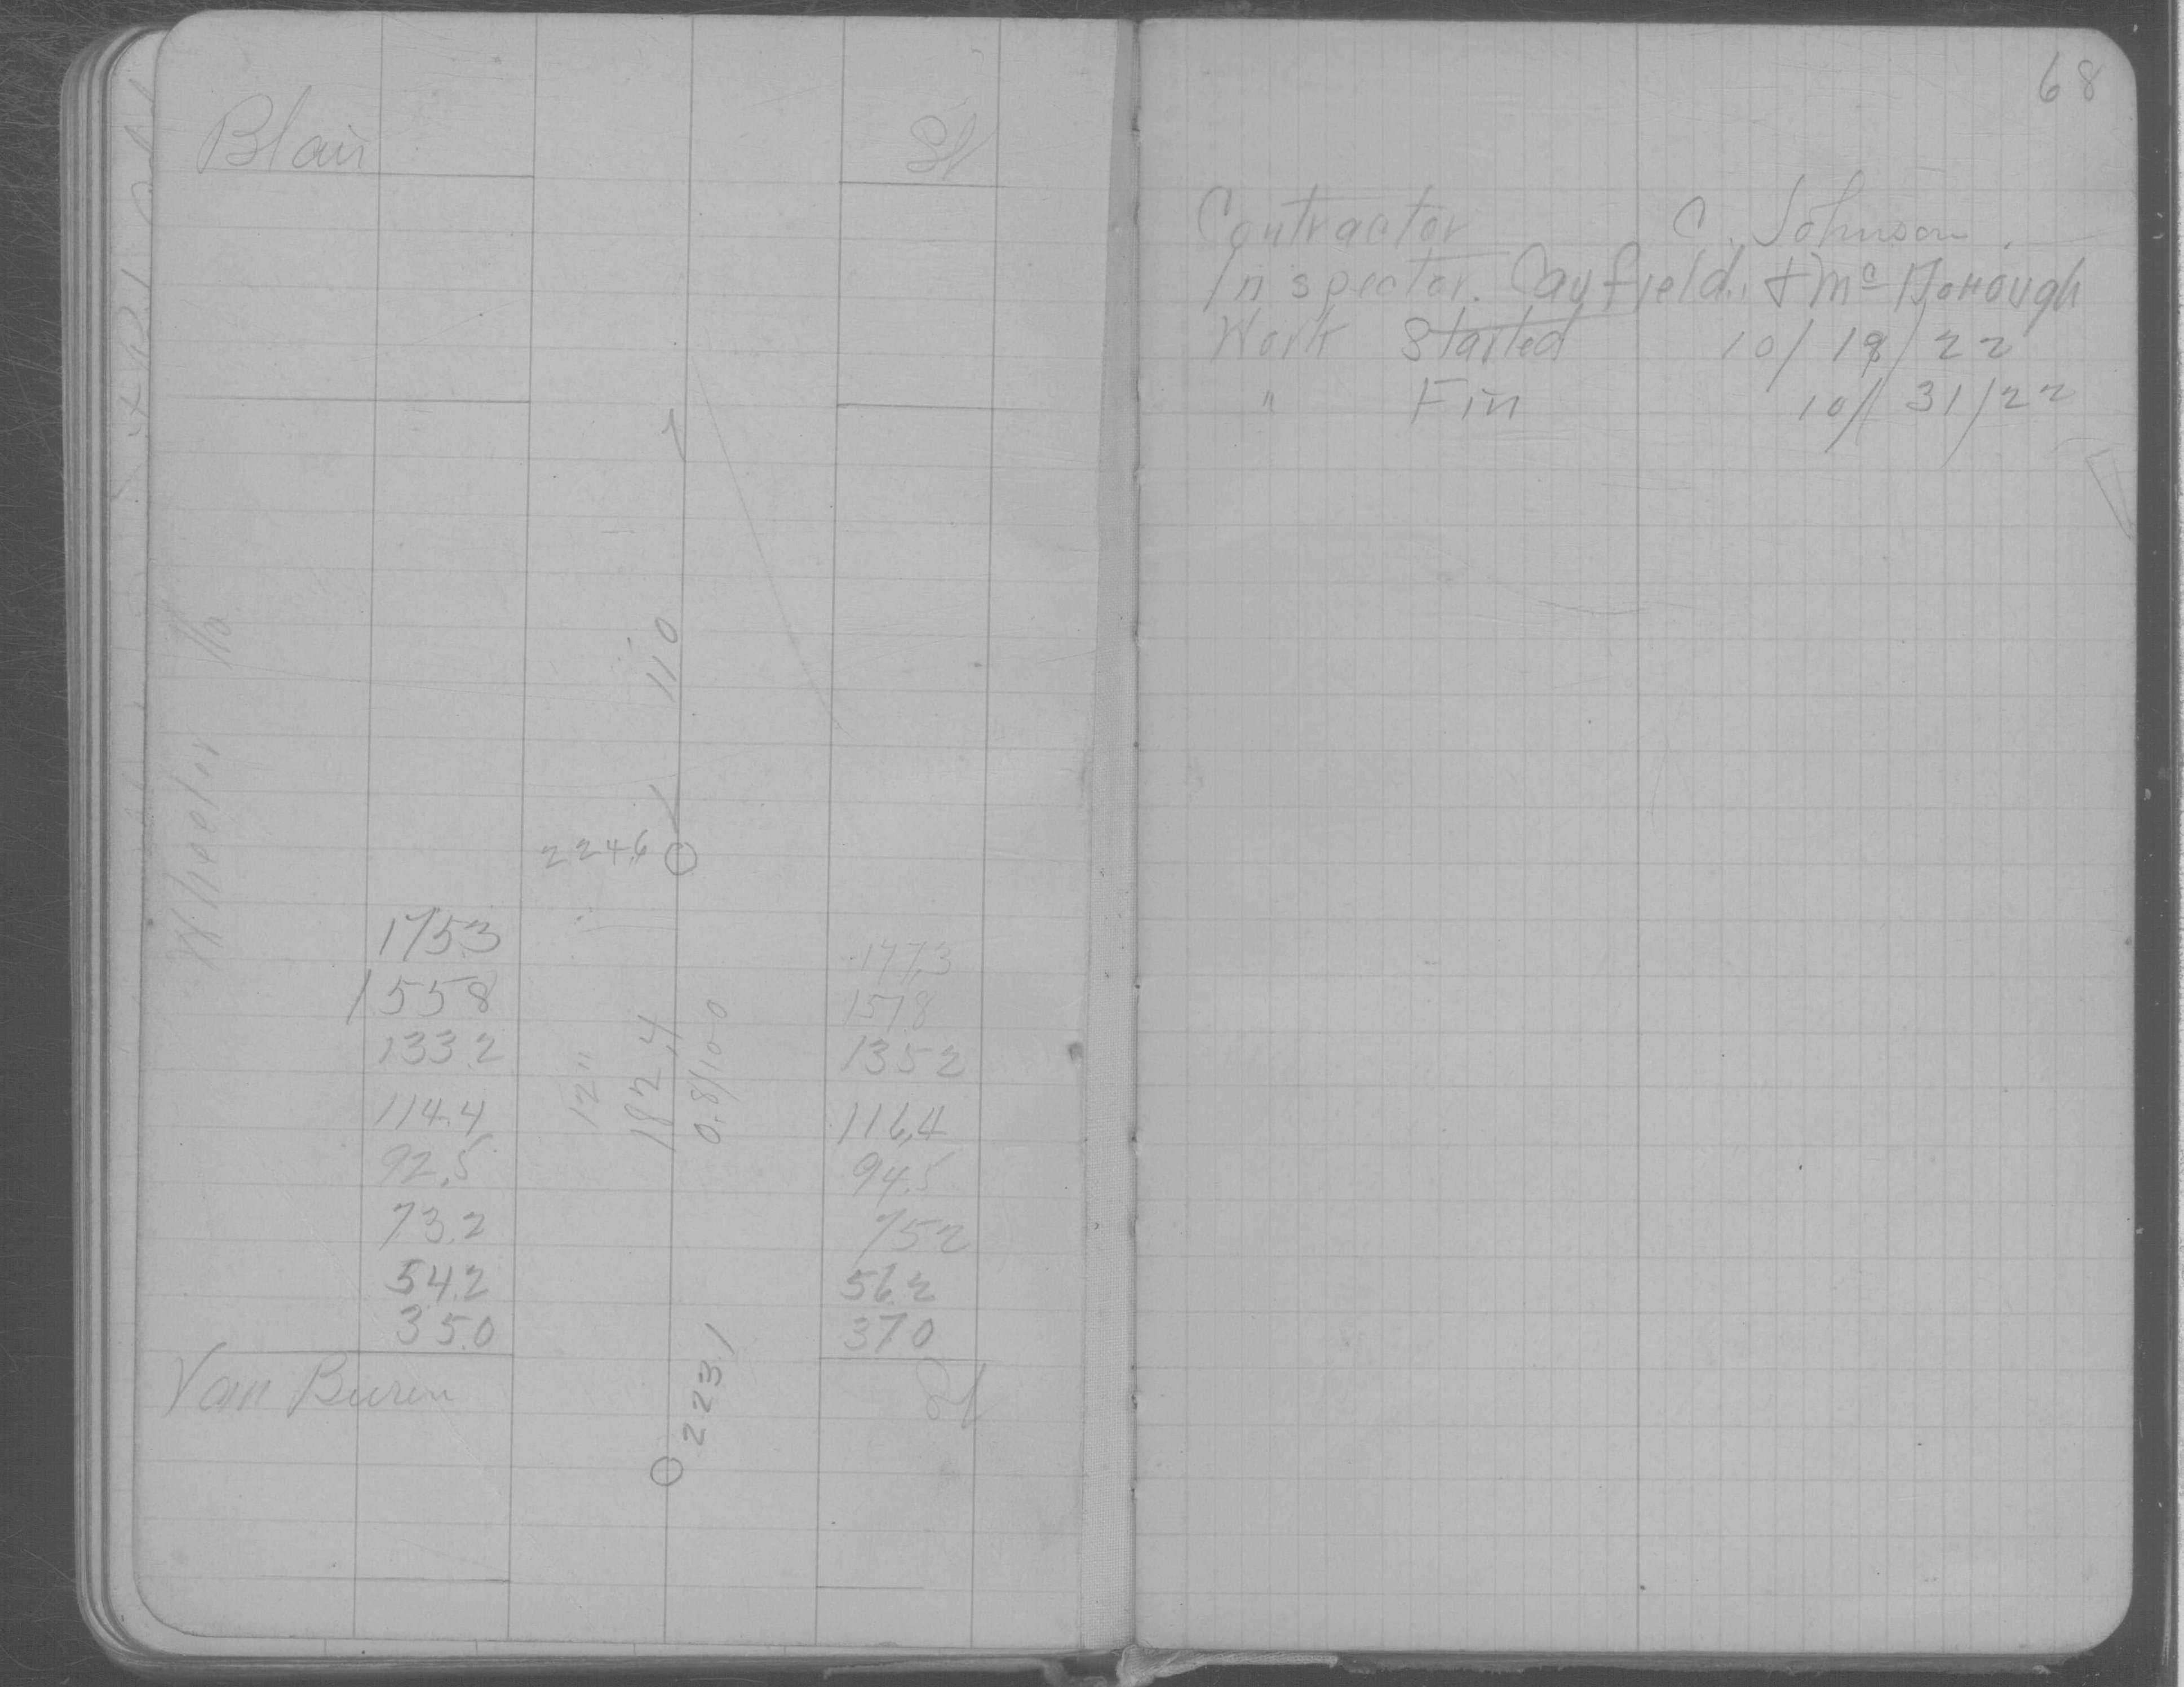 Blair St
110
224.6
Wheeler
175.3 177.3
155.8 157.8
133.2 135.2
12"
182.4
0.8/100
114.4 116.4
92.5 94.5
73.2 75.2
54.2 56.2
35.0 37.0
Van Buren St
223.1
68
Contractor C. Johnson.
Inspector. Cayfield. & McDonough
Work Started 10/19/22
" Fin 10/31/22